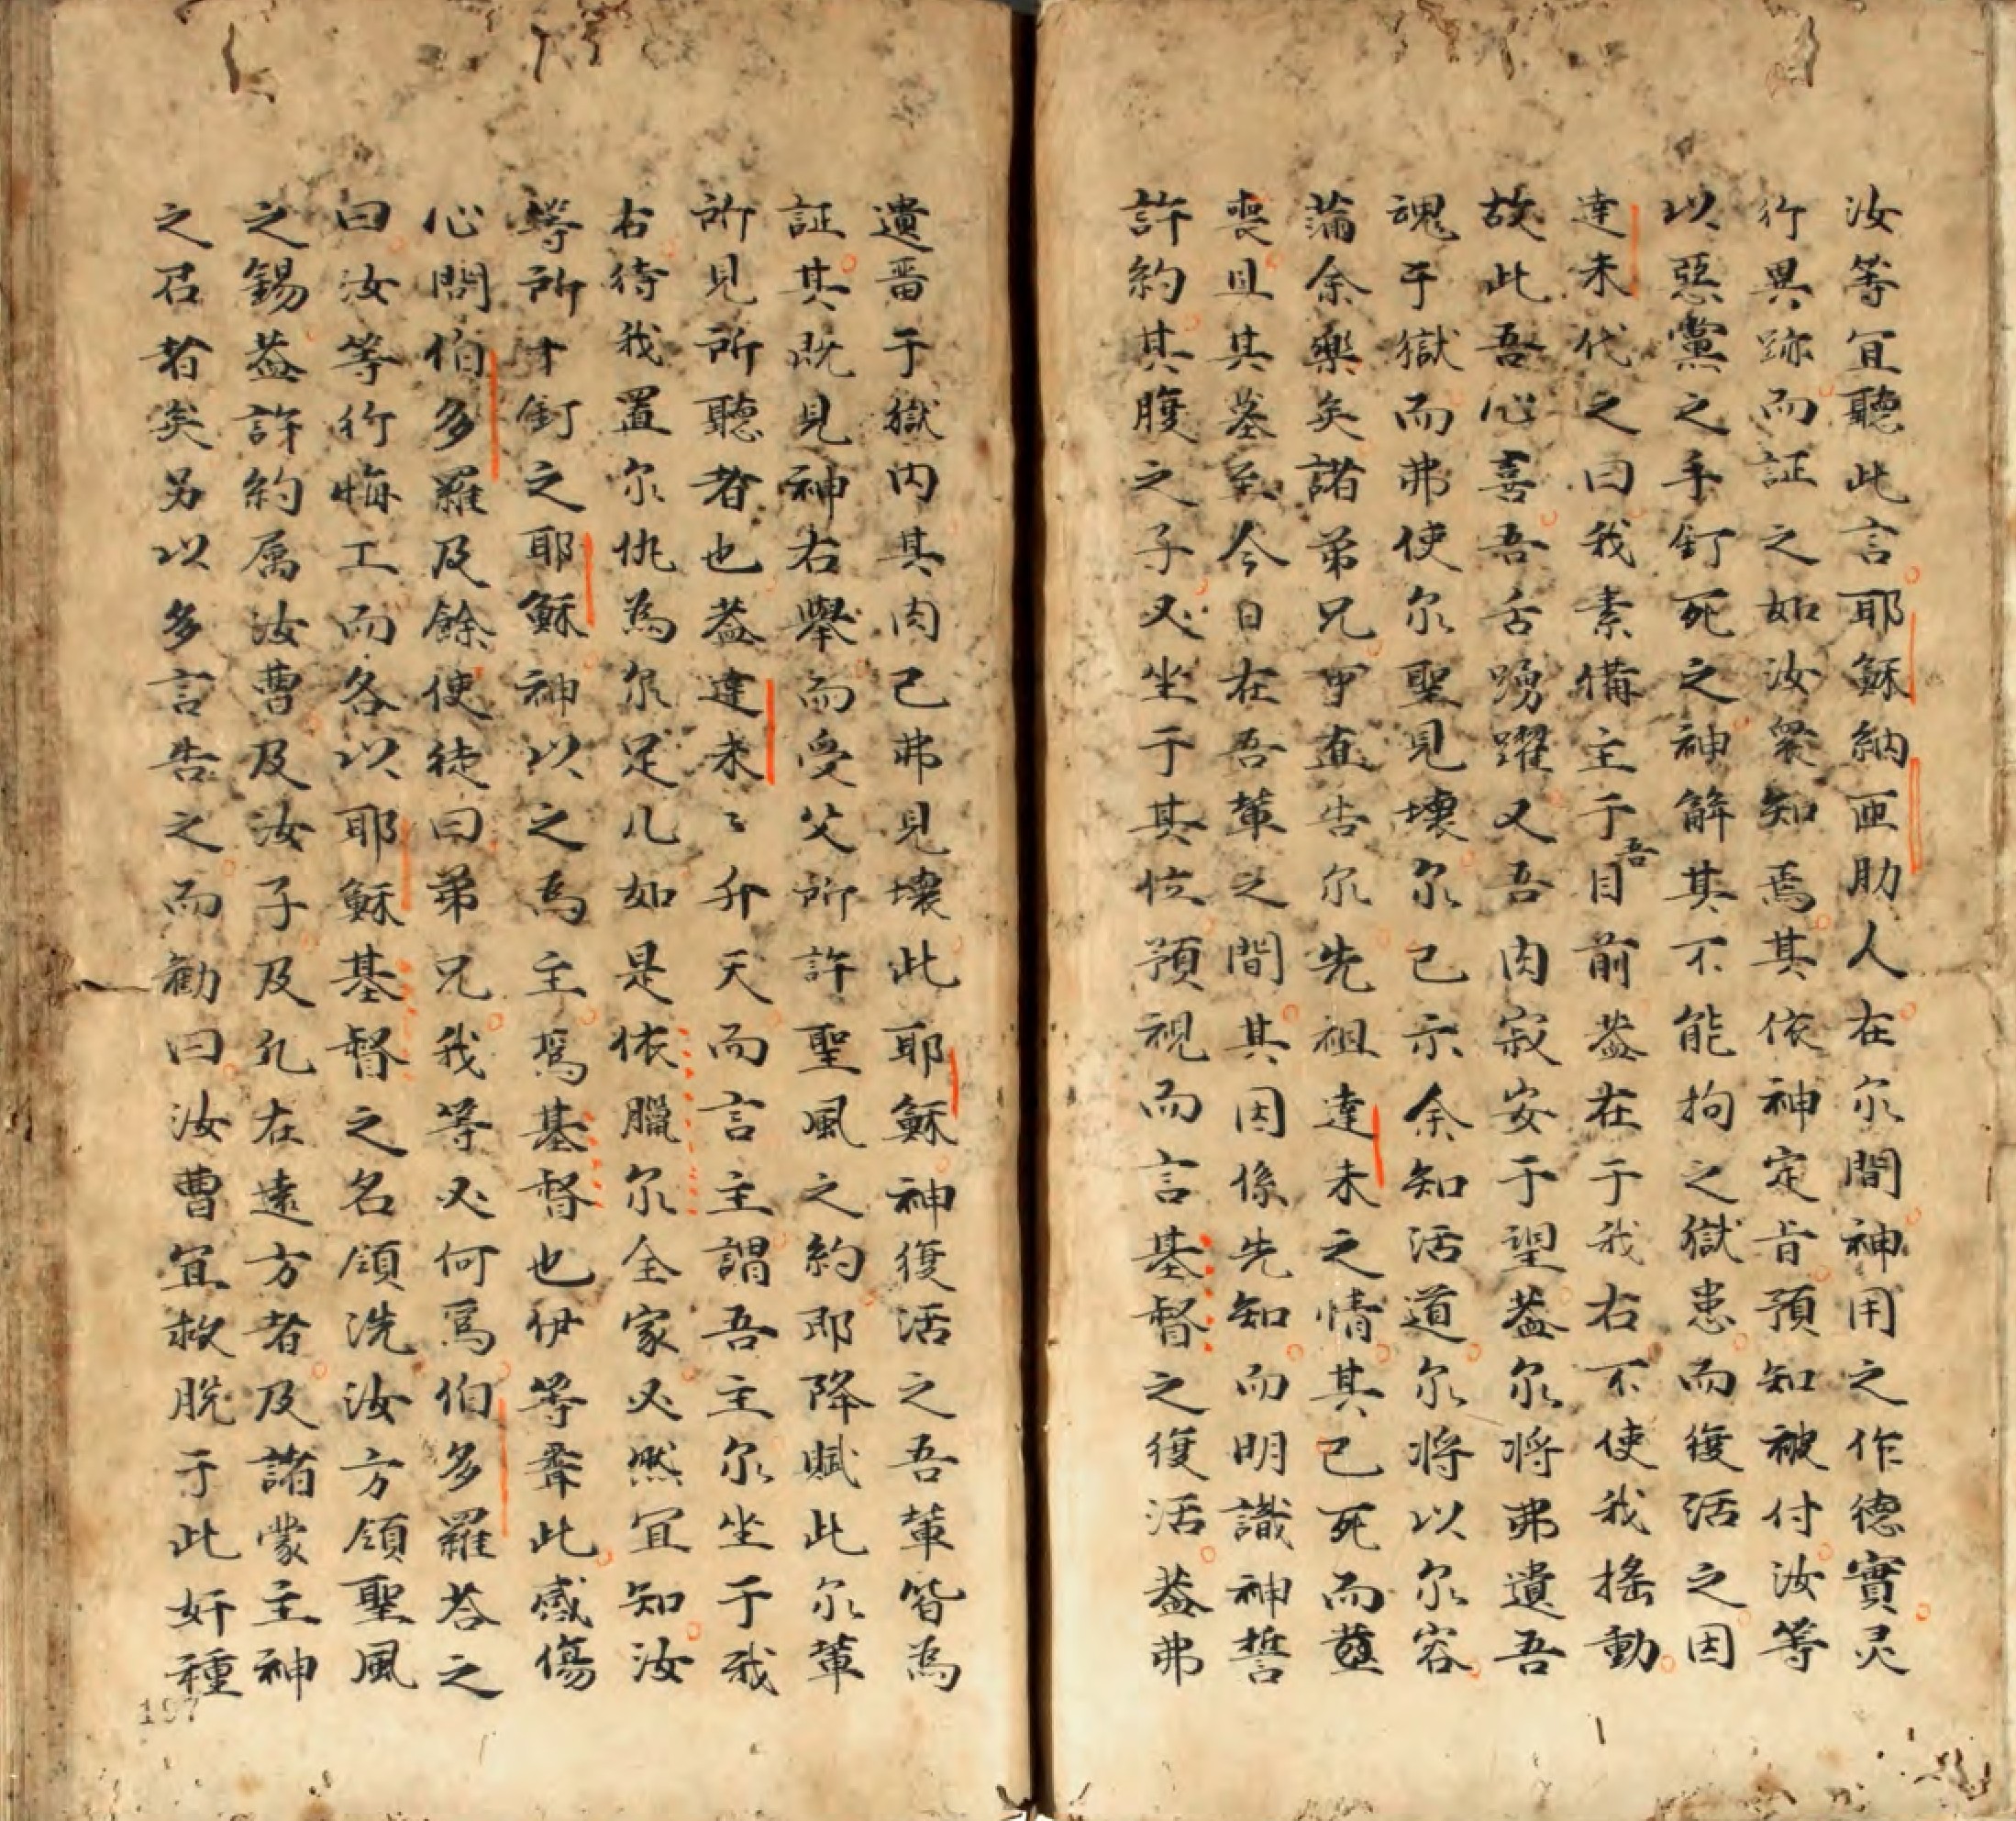 汝等宜聽此言耶穌納匝肋人在尔間神用之作德實灵
行異跡而証之如汝衆知焉其依神定旨預知被付汝等
以惡黨之手釘死之神解其不能拘之獄患而復活之因
達未代之曰我素備主于吾目前蓋在于我右不使我搖動
故此吾心喜吾舌踴躍又吾肉寂安于望蓋尔將弗遺吾
魂于獄而弗使尔聖見壞尔已示余知活道尔將以尔容
蒲余樂矣諾弟兄
直告尔先祖達未之情其已死而
喪且其墓至今日在吾輩之間其因係先知而明識神誓
許約其腹之子必坐于其位預視而言基督之復活蓋弗
遺于獄内其肉已弗見壞此耶穌神復活之吾輩皆為
証其既見神右舉而受父所許聖風之約即降賦此尔輩
所見所聽者也蓋達未〻升天而言主謂吾主尔坐于我
右待我置尔仇為尔足几如是依臘尔全家必然宜知汝
等所十釘之耶穌神以之為主爲基督也伊等聲此感傷
心問伯多羅及餘使徒曰弟兄我等必何爲伯多羅荅之
曰汝等行悔工而各以耶穌基督之名領洗汝方領聖風
之錫蓋許約属汝曹及汝子及凡在遠方者及諸蒙主神
之召者矣另以多言告之而勸曰汝曹宜救脫于此奸種
197